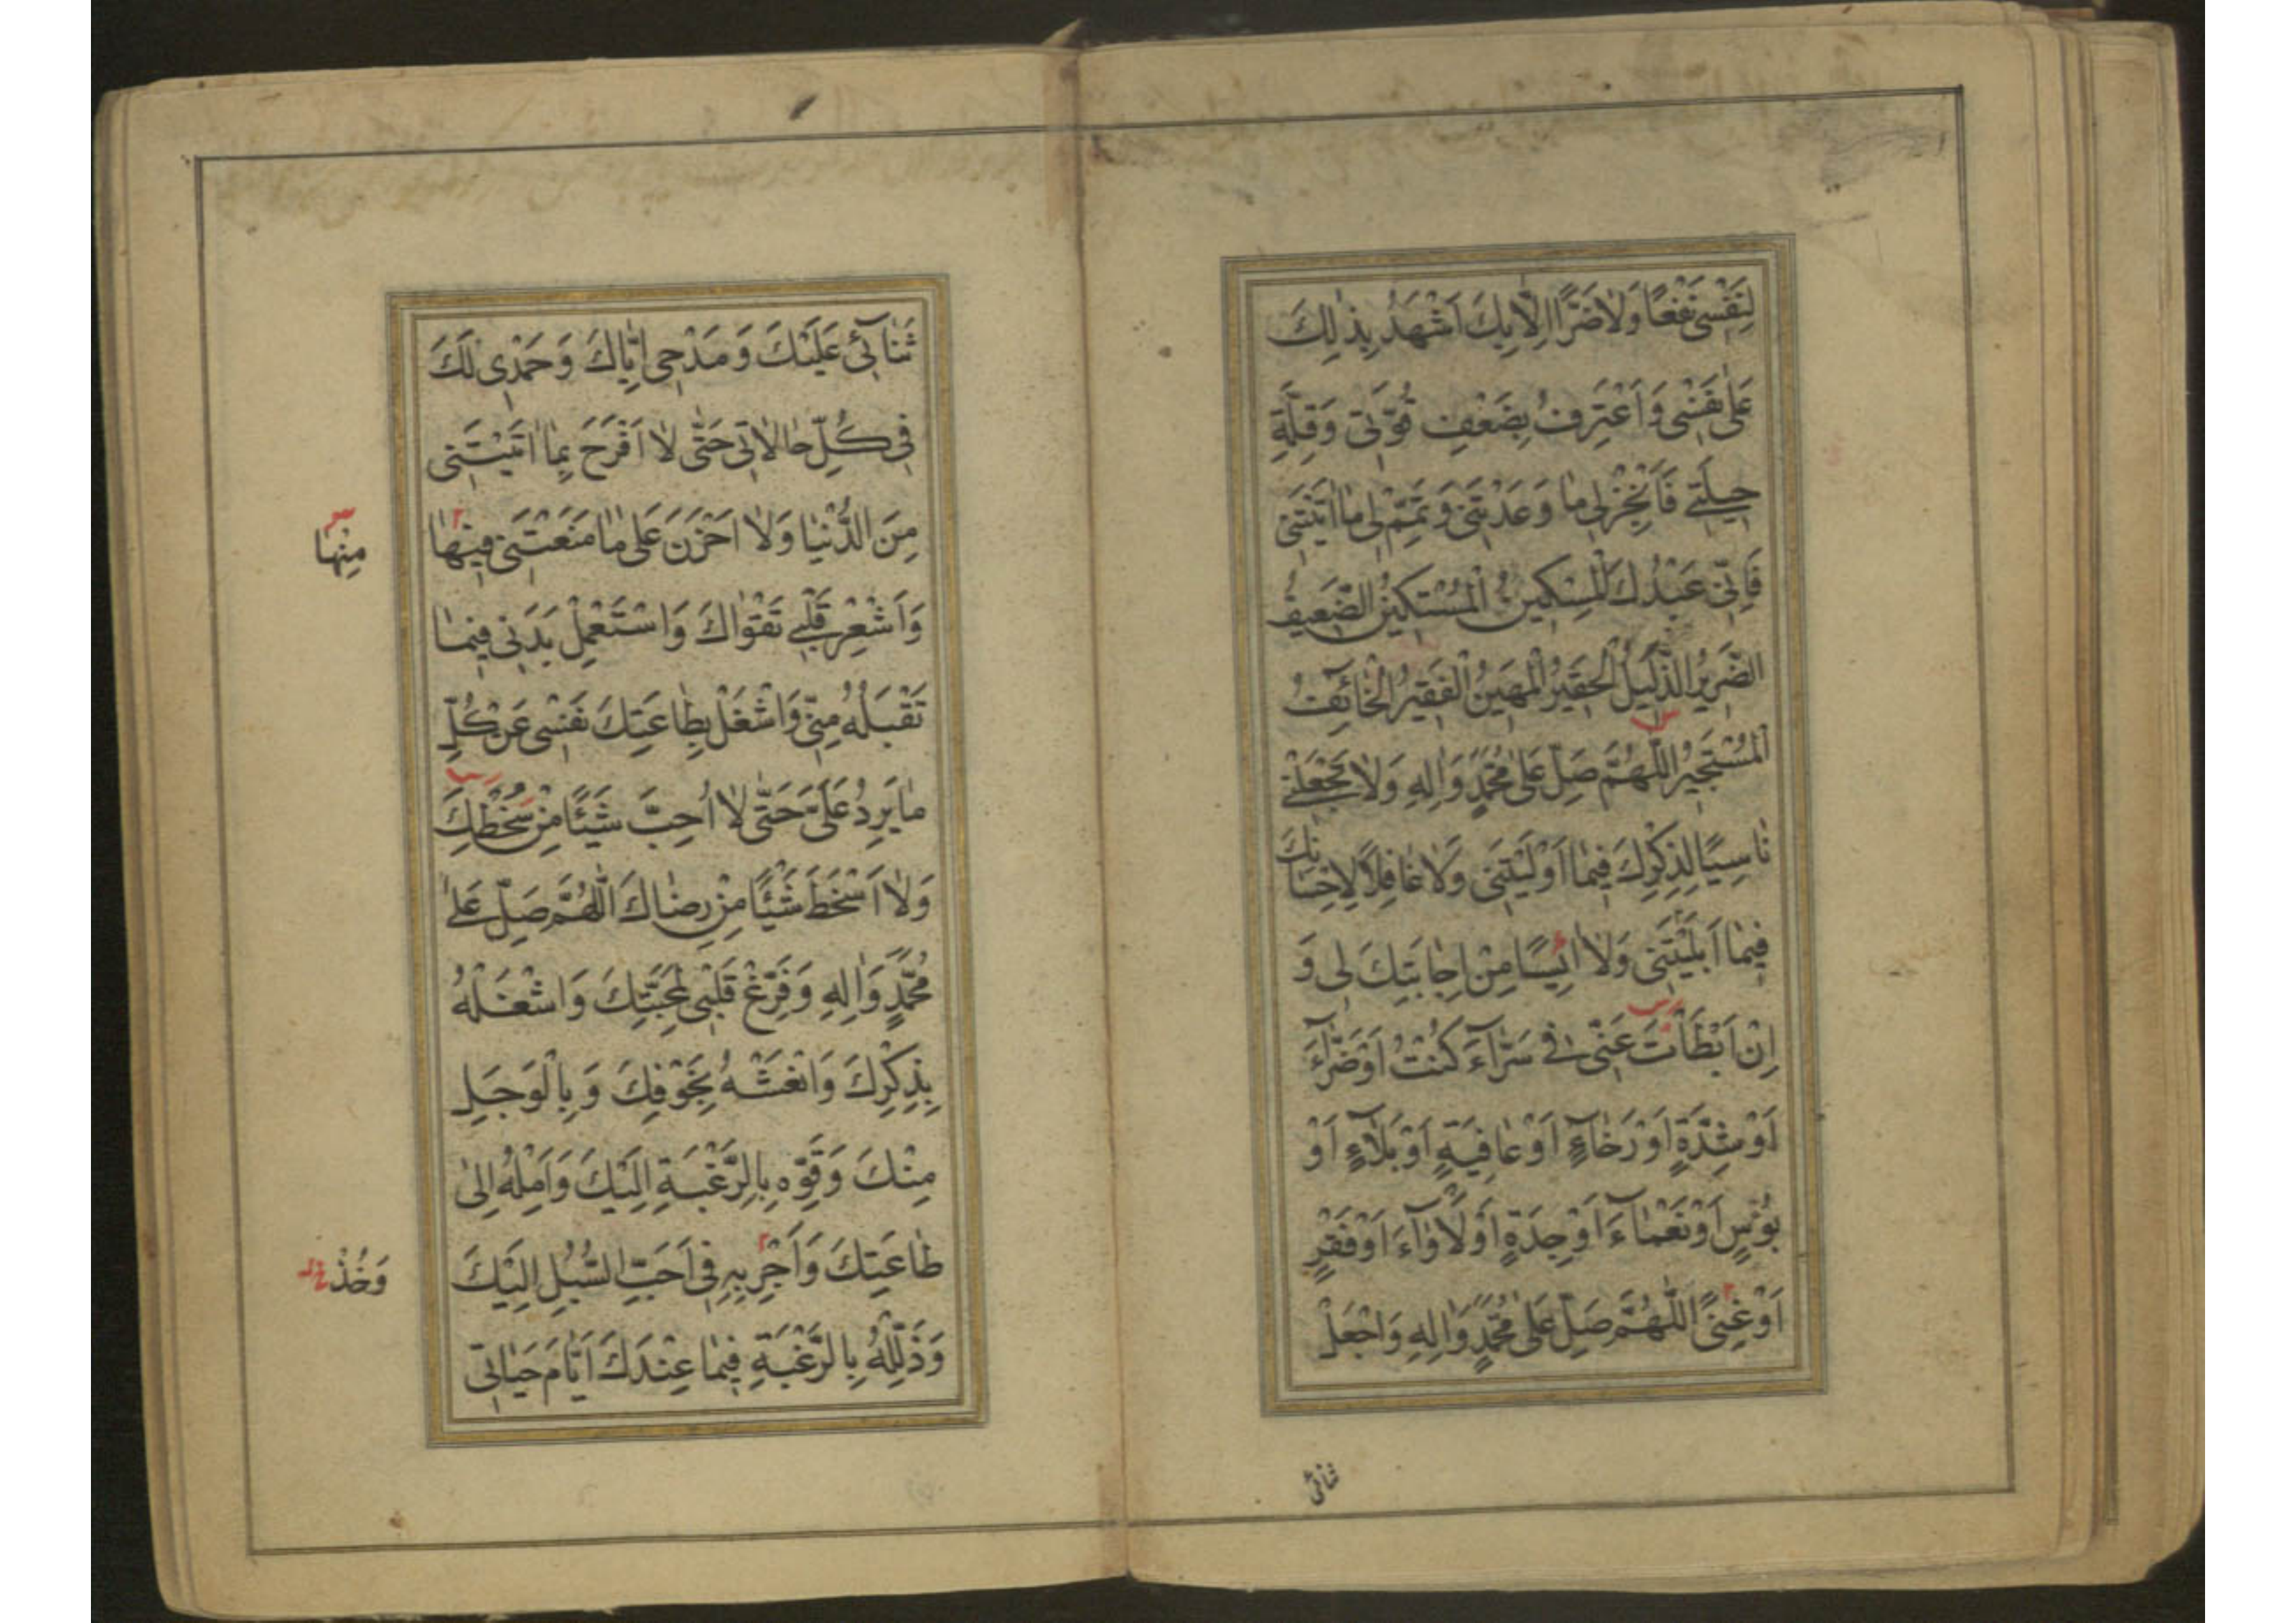 لِنَفْسِي نَفْعًا وَلَا ضَرًّا اِلَّا بِكَ اَشْهَدُ بِذٰلِكَ
عَلٰى نَفْسِي وَاَعْتَرِفُ بِضَعْفِ قُوَّتِي وَقِلَّةِ
حِيلَتِي فَاَنْجِزْ لِي مَا وَعَدْتَنِي وَتَمِّمْ لِي مَا اٰتَيْتَنِي
فَاِنِّي عَبْدُكَ الْمِسْكِينُ الْمُسْتَكِينُ الضَّعِيفُ
الضَّرِيرُ الذَّلِيلُ الْحَقِيرُ الْمَهِينُ الْفَقِيرُ الْخَائِفُ
الْمُسْتَجِيرُ اَللّٰهُمَّ صَلِّ عَلٰى مُحَمَّدٍ وَاٰلِهِ وَلَا تَجْعَلْنِي
نَاسِيًا لِذِكْرِكَ فِيمَا اَوْلَيْتَنِي وَلَا غَافِلًا لِاِحْسَانِكَ
فِيمَا اَبْلَيْتَنِي وَلَا اٰيِسًا مِنْ اِجَابَتِكَ لِي وَ
اِنْ اَبْطَاَتْ عَنِّي فِي سَرَّآءَ كُنْتُ اَوْ ضَرَّآءَ
اَوْ شِدَّةٍ اَوْ رَخَآءٍ اَوْ عَافِيَةٍ اَوْ بَلَآءٍ اَوْ
بُؤْسٍ اَوْ نَعْمَاءَ اَوْ جِدَةٍ اَوْ لَاْوَآءَ اَوْ فَقْرٍ
اَوْ غِنًى اَللّٰهُمَّ صَلِّ عَلٰى مُحَمَّدٍ وَاٰلِهِ وَاجْعَلْ
ثنائی
ثَنَآئِي عَلَيْكَ وَمَدْحِي اِيَّاكَ وَحَمْدِي لَكَ
فِي كُلِّ حَالَاتِي حَتّٰى لَا اَفْرَحَ بِمَا اٰتَيْتَنِي
مِنَ الدُّنْيَا وَلَا اَحْزَنَ عَلٰى مَا مَنَعْتَنِي فِيهَا
مِنْهَا
وَاَشْعِرْ قَلْبِي تَقْوَاكَ وَاسْتَعْمِلْ بَدَنِي فِيمَا
تَقْبَلُهُ مِنِّي وَاشْغَلْ بِطَاعَتِكَ نَفْسِي عَنْ كُلِّ
مَا يَرِدُ عَلَيَّ حَتّٰى لَا اُحِبَّ شَيْئًا مِنْ سُخْطِكَ
وَلَا اَسْخَطَ شَيْئًا مِنْ رِضَاكَ اَللّٰهُمَّ صَلِّ عَلٰى
مُحَمَّدٍ وَاٰلِهِ وَفَرِّغْ قَلْبِي لِمَحَبَّتِكَ وَاشْغَلْهُ
بِذِكْرِكَ وَانْعَشْهُ بِخَوْفِكَ وَبِالْوَجَلِ
مِنْكَ وَقَوِّهِ بِالرَّغْبَةِ اِلَيْكَ وَاَمِلْهُ اِلٰى
طَاعَتِكَ وَاَجْرِ بِهِ فِي اَحَبِّ السُّبُلِ اِلَيْكَ
وَخُذْ
وَذَلِّلْهُ بِالرَّغْبَةِ فِيمَا عِنْدَكَ اَيَّامَ حَيَاتِي